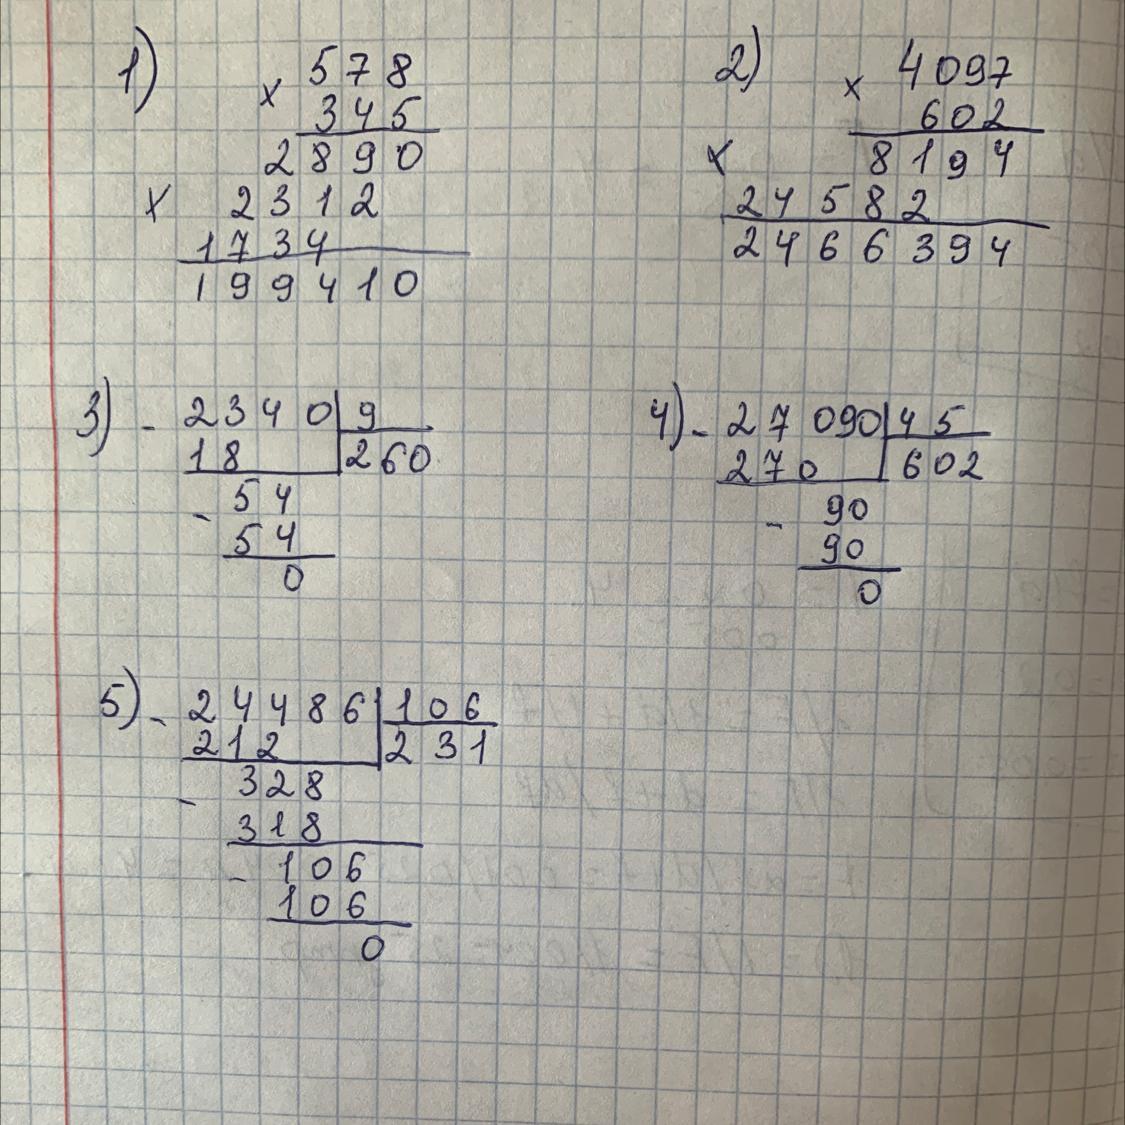 1)
× 578
345
2890
× 2312
1734
199410
2)
× 4097
602
8194
×
24582
2466394
3) - 2340 | 9
18 | 260
- 54
54
0
4) - 27090 | 45
270 | 602
- 90
90
0
5) - 24486 | 106
212 | 231
- 328
318
- 106
106
0